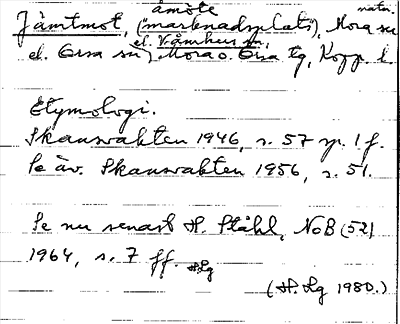 åmöte natn.
Jämtmot, ("marknadsplats"), Mora sn
el. Våmhus sn,
el. Orsa sn, Mora o. Orsa tg, Kopp. l.
Etymologi.
Skansvakten 1946, s. 57 sp. 1 f.
Se äv. Skansvakten 1956, s. 51.
Se nu senast H. Ståhl, NoB (52)
1964, s. 7 ff. HLg
(H. Lg 1980.)